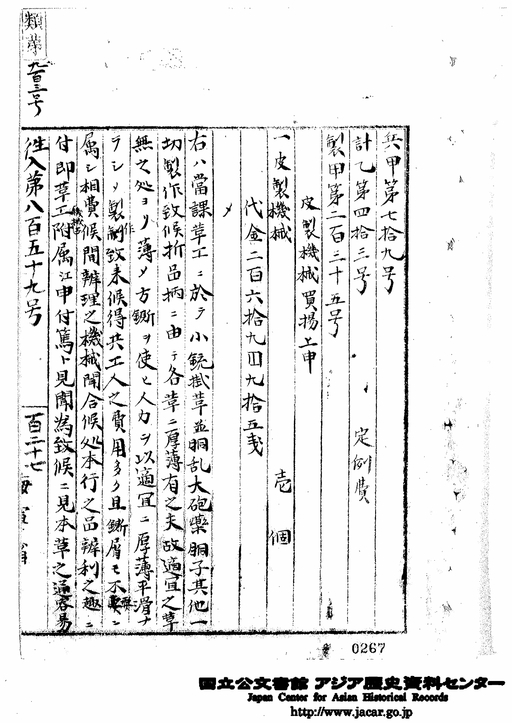 兵甲第七拾九号
計乙第四拾三号 定例費
製甲第二百三十五号
皮製機械買揚上申
一皮製機械 壱個
代金二百六拾九円九拾五戋
〆
右ハ當課草工ニ於テ小銃掛革並胴乱大砲藥胴子其他一
切製作致候折品柄ニ由テ各革ニ厚薄有之夫故適宜之革
無之処ヨリ薄メ方鉋ヲ使ヒ人力ヲ以適宜ニ厚薄平滑ナ
ラシメ製作致来候得共工人之費用多ク且鉋屑モ不要ニ
属シ相費候間辨理之機械聞合候処本行之品辨利之趣ニ
付即革工機械附属江申付篤ト見聞為致候ニ見本革之通容易
往入第八百五十九号
百三十七
海軍省
類第
九百三号
0267
国立公文書館 アジア歴史資料センター
Japan Center for Asian Historical Records
http://www.jacar.go.jp